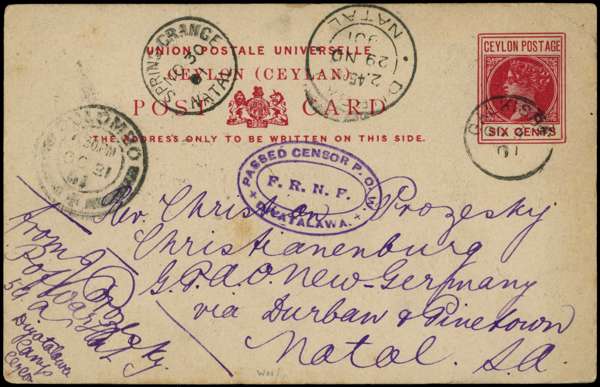 UNION POSTALE UNIVERSELLE
CEYLON (CEYLAN)
POST CARD
THE ADDRESS ONLY TO BE WRITTEN ON THIS SIDE.
CEYLON POSTAGE
SIX CENTS
SPRING GRANGE
NO 30
NATAL
NATAL
2.45
29 NO
COLOMBO
PASSED CENSOR P.O.W.
F. R. N. F.
DIYATALAWA.
Rev. Christian Prozesky
Christianenburg
G.P.O. New-Germany
via Durban & Pinetown
Natal. S.A.
from
Prozesky.
Diyatalawa
Camp